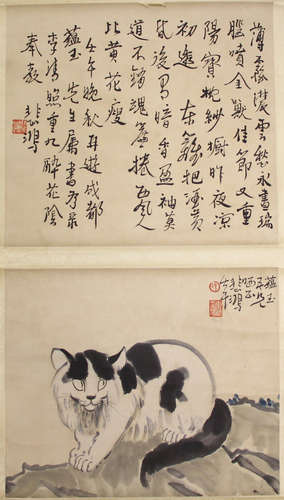 薄霧濃雲愁永晝瑞
腦噴金獸佳節又重
陽寶枕紗櫥昨夜涼
初透 東籬把酒黃
昏後有暗香盈袖莫
道不銷魂簾捲西風人
比黃花瘦
壬午晚秋再遊成都
蘊玉先生屬書
李清照重九醉花陰
奉教 悲鴻
蘊玉
悲鴻